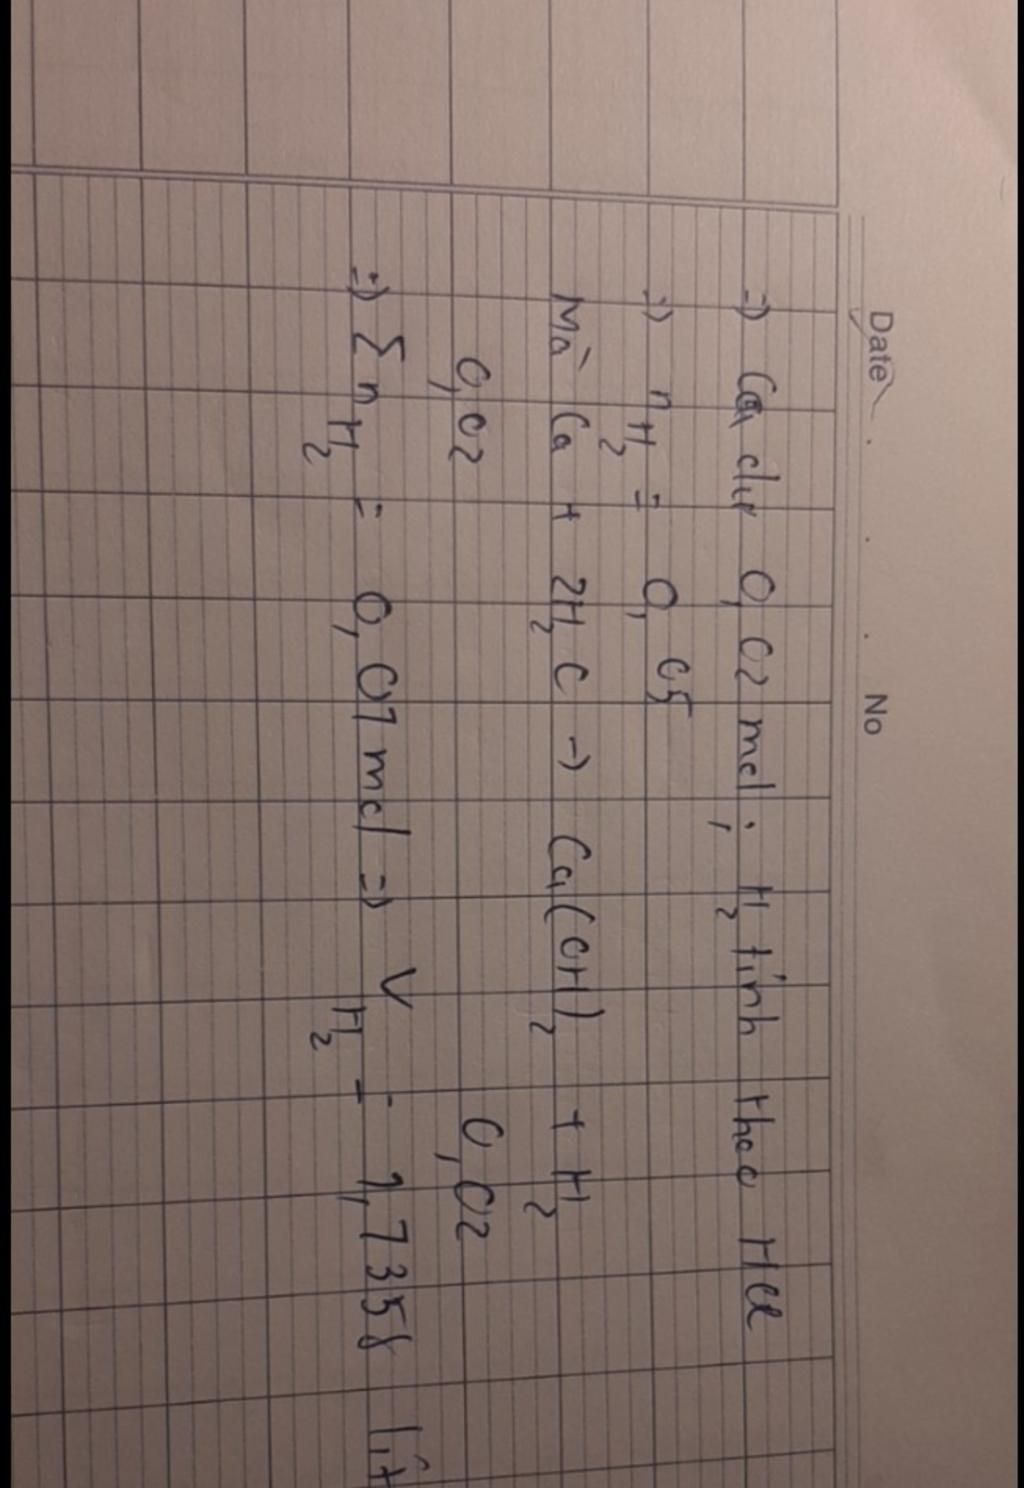 Date No
=) Ca dư 0,02 mol ; H2 tính theo HCl
=) nH2 = 0,05
Mà Ca + 2H2O -> Ca(OH)2 + H2
0,02 0,02
=) ∑nH2 = 0,07 mol =) VH2 = 1,7358 lít